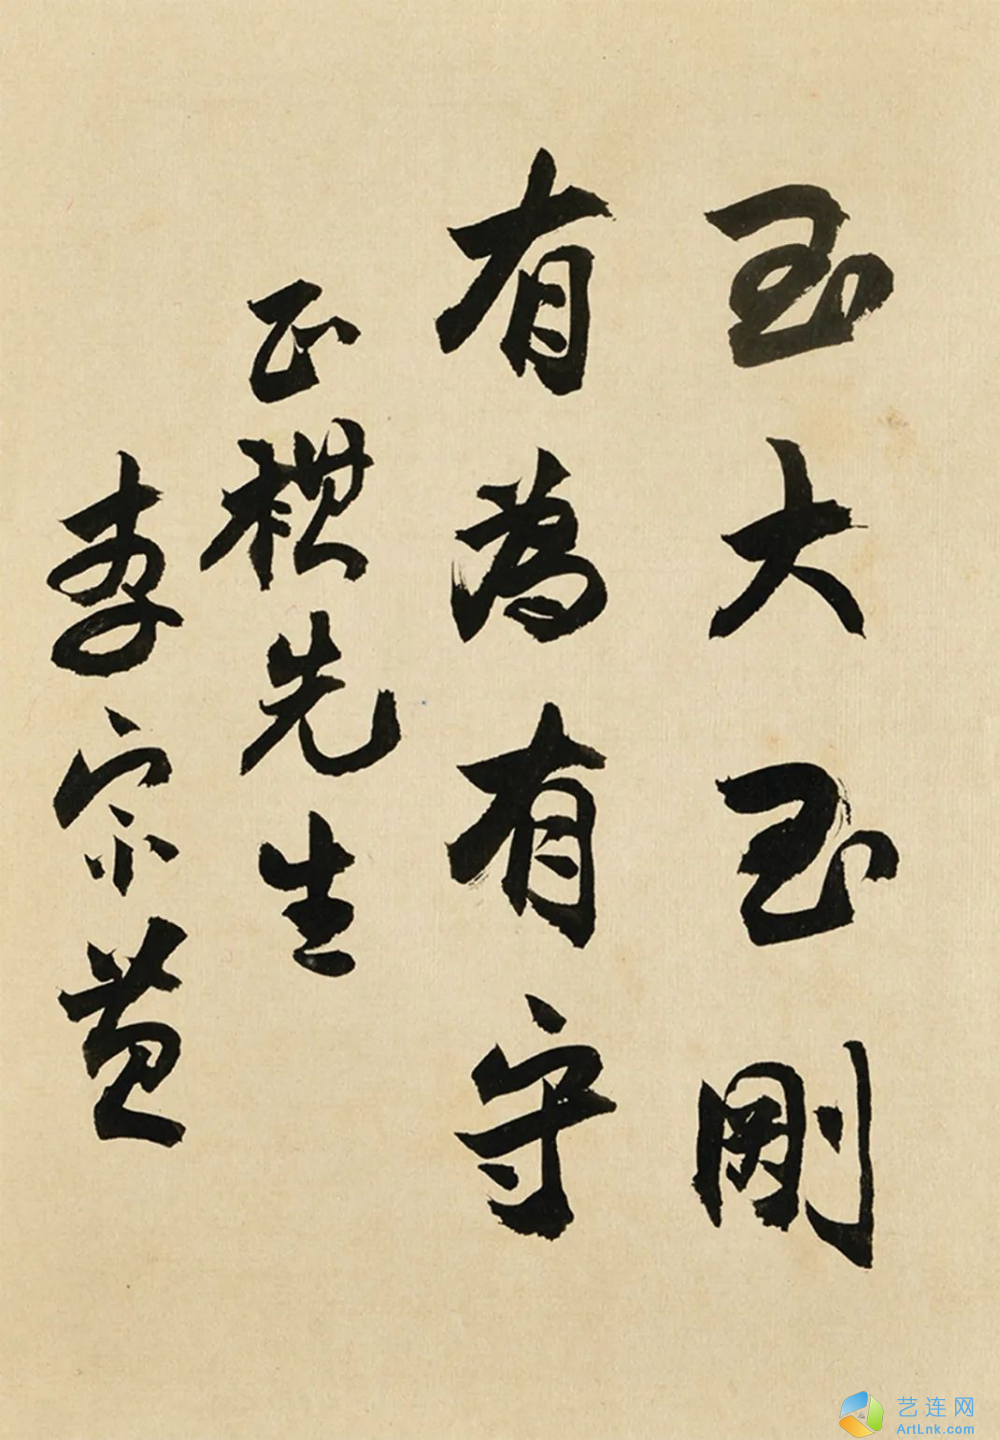 至大至刚
有為有守
正祺先生
李宗黄
艺连网
ArtLnk.com